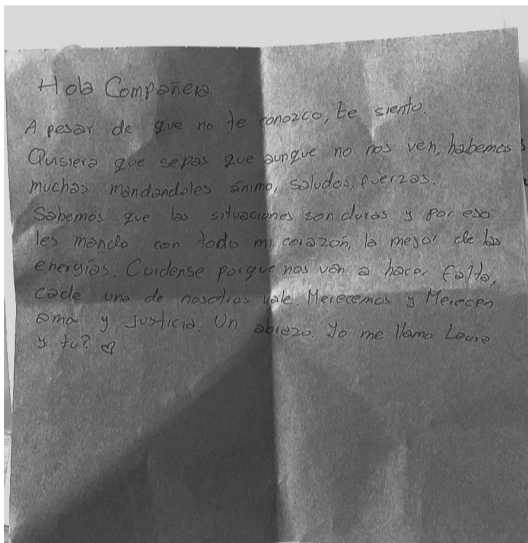 Hola Compañera
A pesar de que no te conozco, te siento.
Quisiera que sepas que aunque no nos ven, habemos
muchas mandandoles ánimo, saludos, fuerzas.
Sabemos que las situaciones son duras y por eso
les mando con todo mi corazón, la mejor de las
energías. Cuidense porque nos van a hacer falta,
cada una de nosotros vale. Merecemos y Merecen
amor y Justicia. Un abrazo. Yo me llamo Laura
y tu? ♡